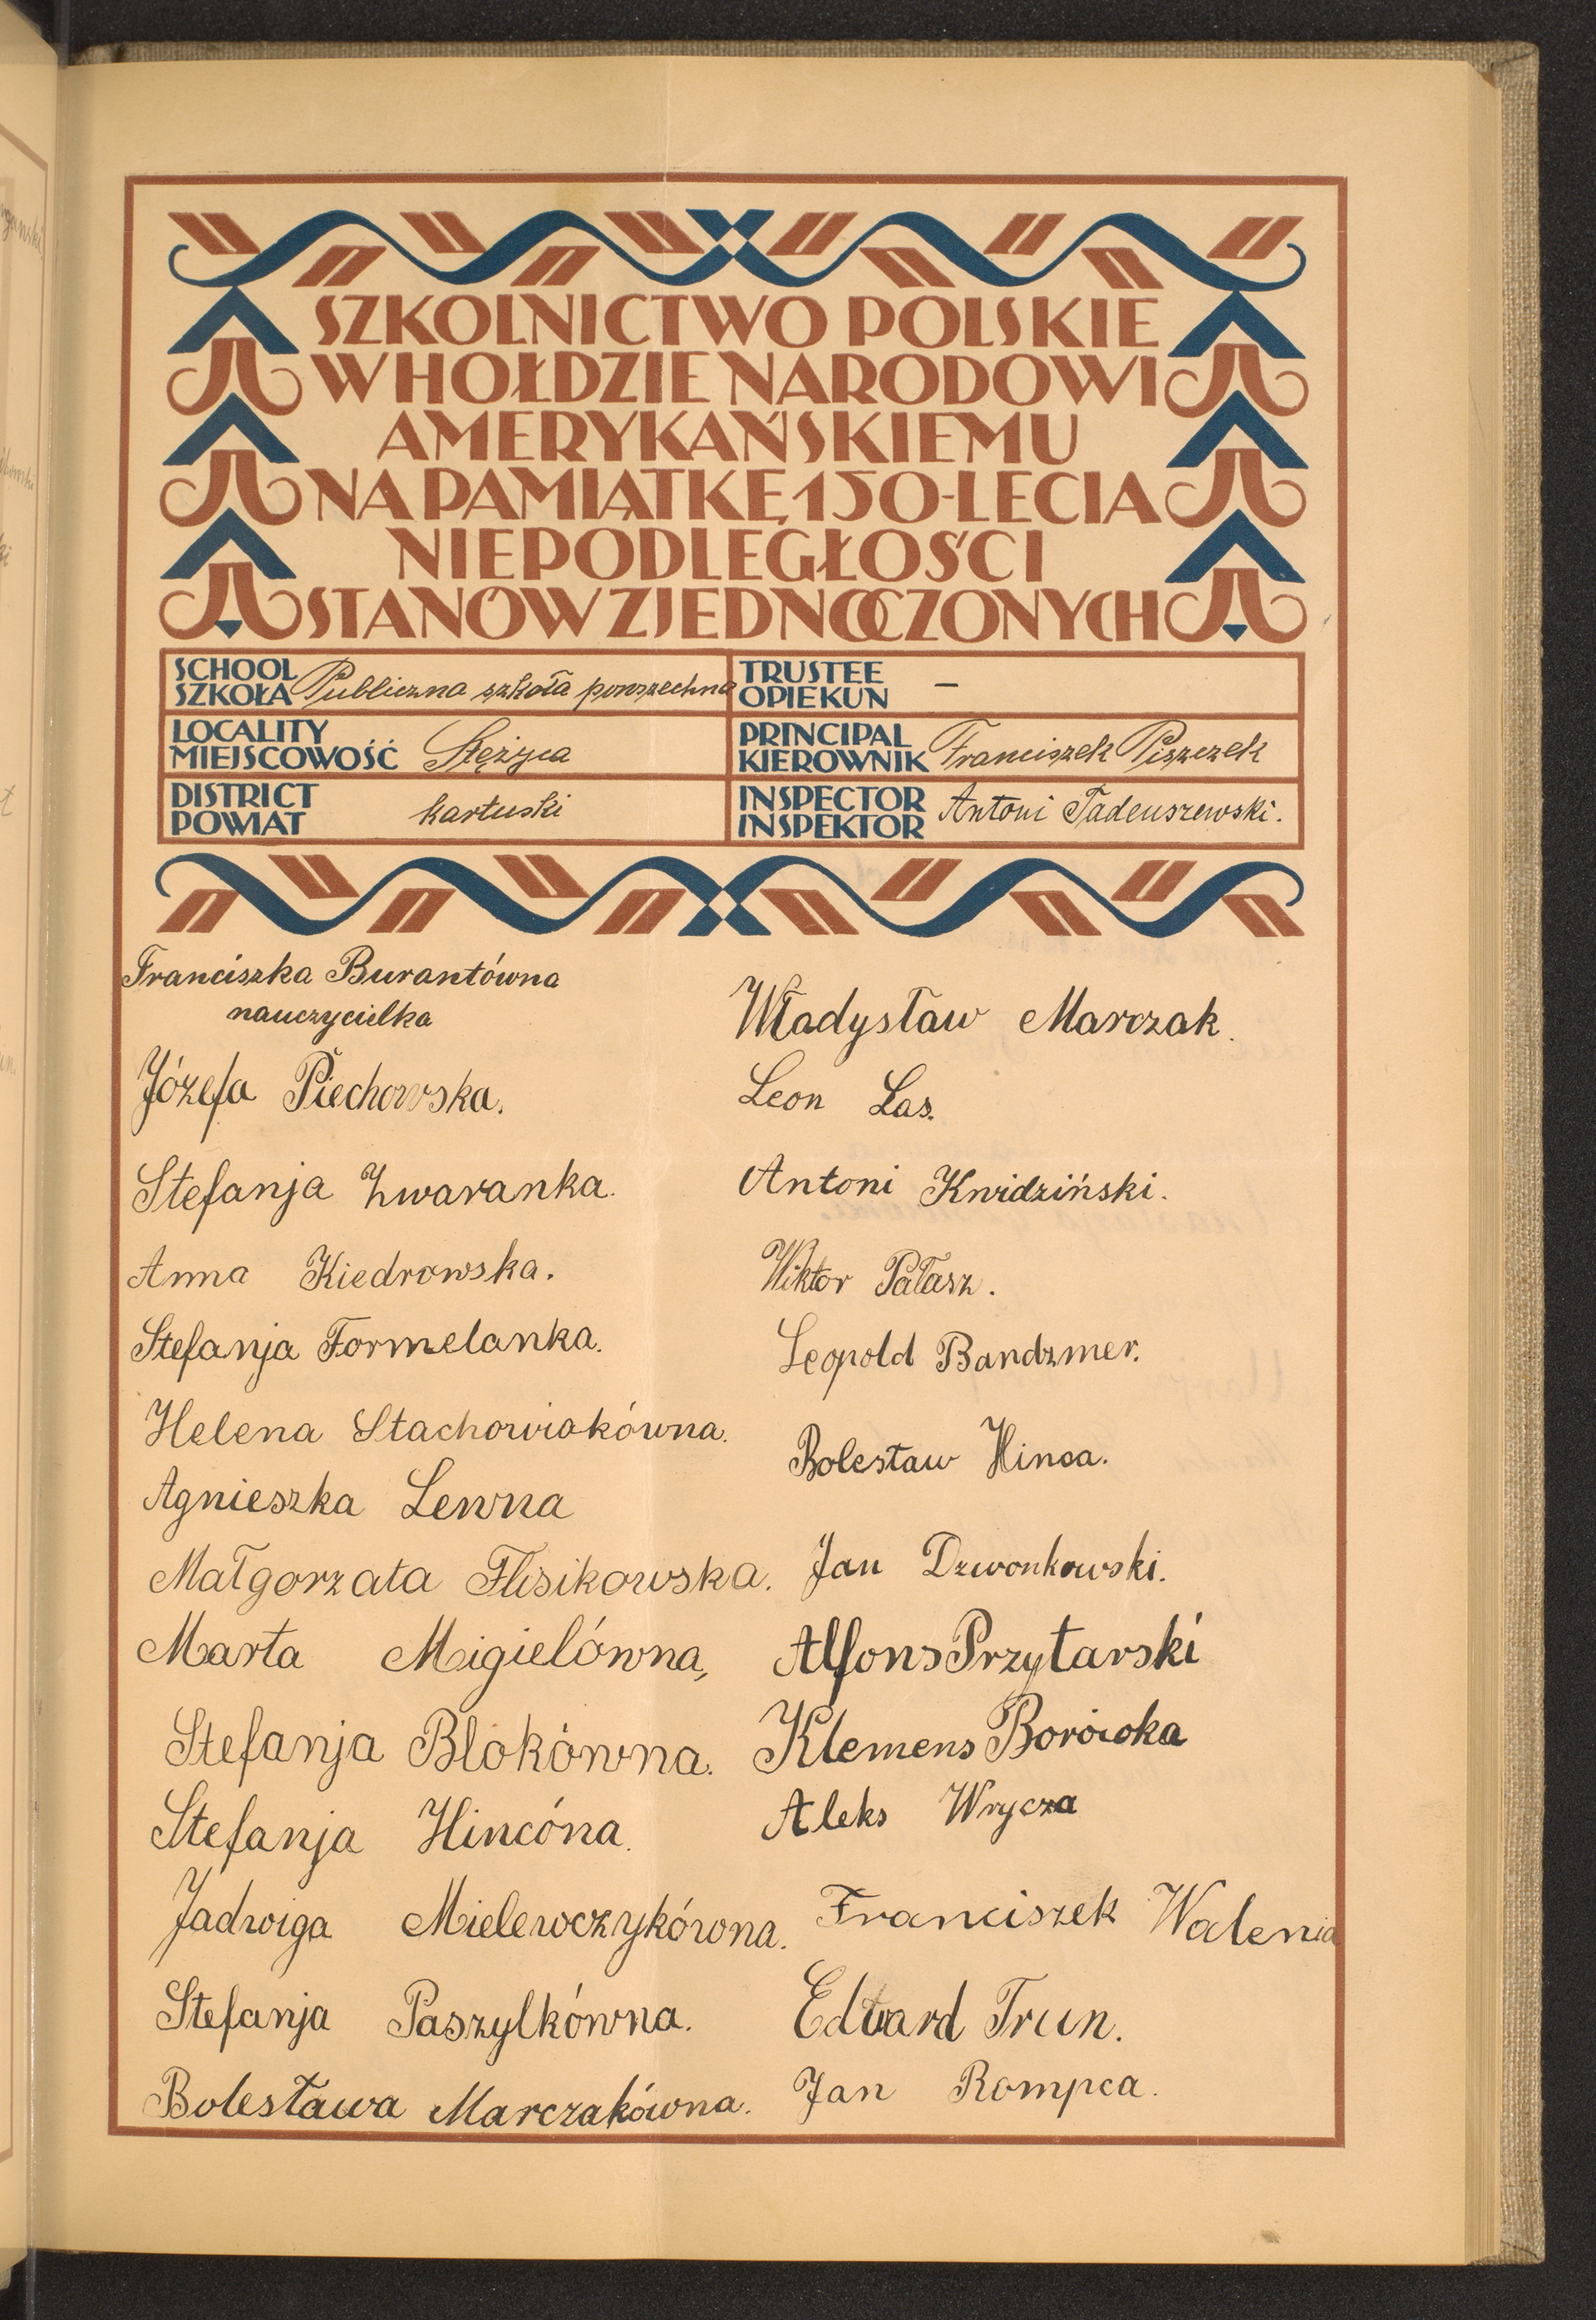 SZKOLNICTWO POLSKIE
W HOŁDZIE NARODOWI
AMERYKAŃSKIEMU
NA PAMIĄTKĘ 150-LECIA
NIEPODLEGŁOŚCI
STANÓW ZJEDNOCZONYCH
SCHOOL
SZKOŁA Publiczna szkoła powszechna
TRUSTEE
OPIEKUN –
LOCALITY
MIEJSCOWOŚĆ Stężyca
PRINCIPAL
KIEROWNIK Franciszek Piszczek
DISTRICT
POWIAT kartuski
INSPECTOR
INSPEKTOR Antoni Tadeuszewski.
Franciszka Burantówna
nauczycielka
Józefa Piechowska.
Stefanja Zwaranka.
Anna Kiedrowska.
Stefanja Formelanka.
Helena Stachowiakówna.
Agnieszka Lewna
Małgorzata Flisikowska.
Marta Migielówna,
Stefanja Blokówna.
Stefanja Hincóna.
Jadwiga Mielewczykówna.
Stefanja Paszylkówna.
Bolesława Marczakówna.
Władysław Marczak.
Leon Las.
Antoni Knidziński.
Wiktor Pałasz.
Leopold Bandzmer.
Bolesław Hinca.
Jan Dzwonkowski.
Alfons Przytarski
Klemens Borówka
Aleks Wrycza
Franciszek Walenia
Edward Trun.
Jan Rompca.